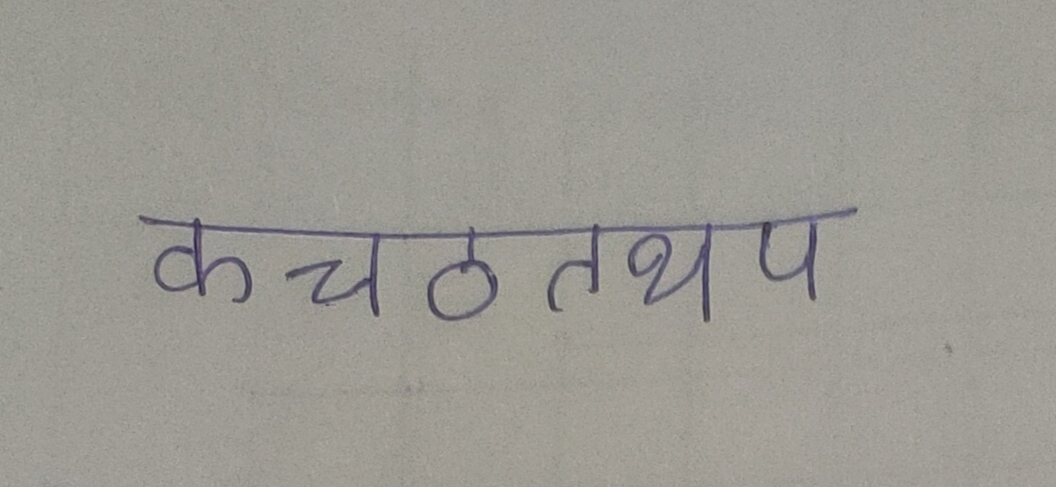 क च ठ त थ प